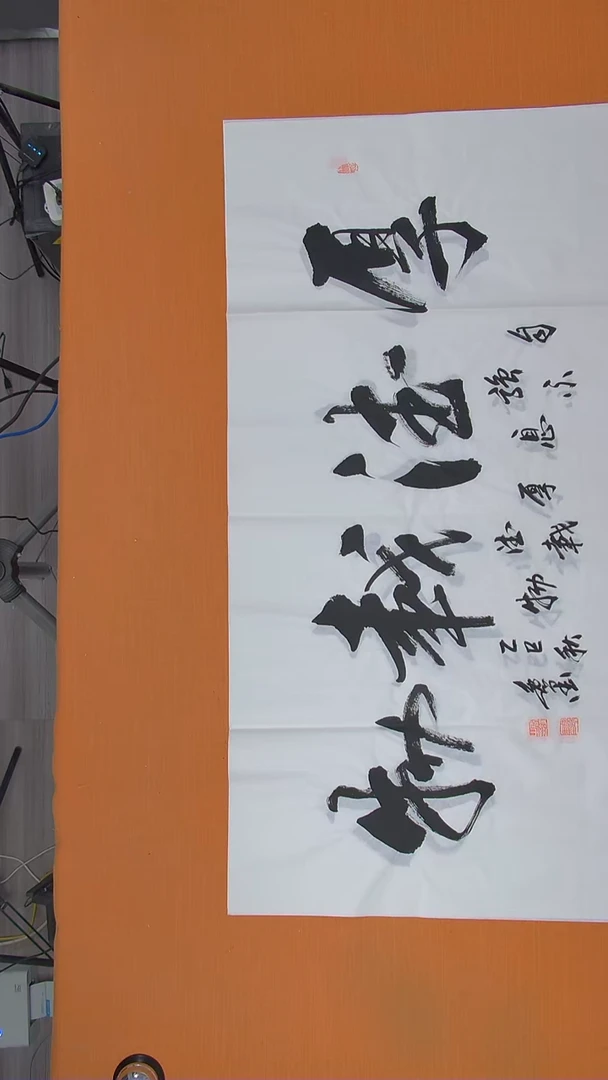 厚德載物
自強不息厚德載物
乙巳秋